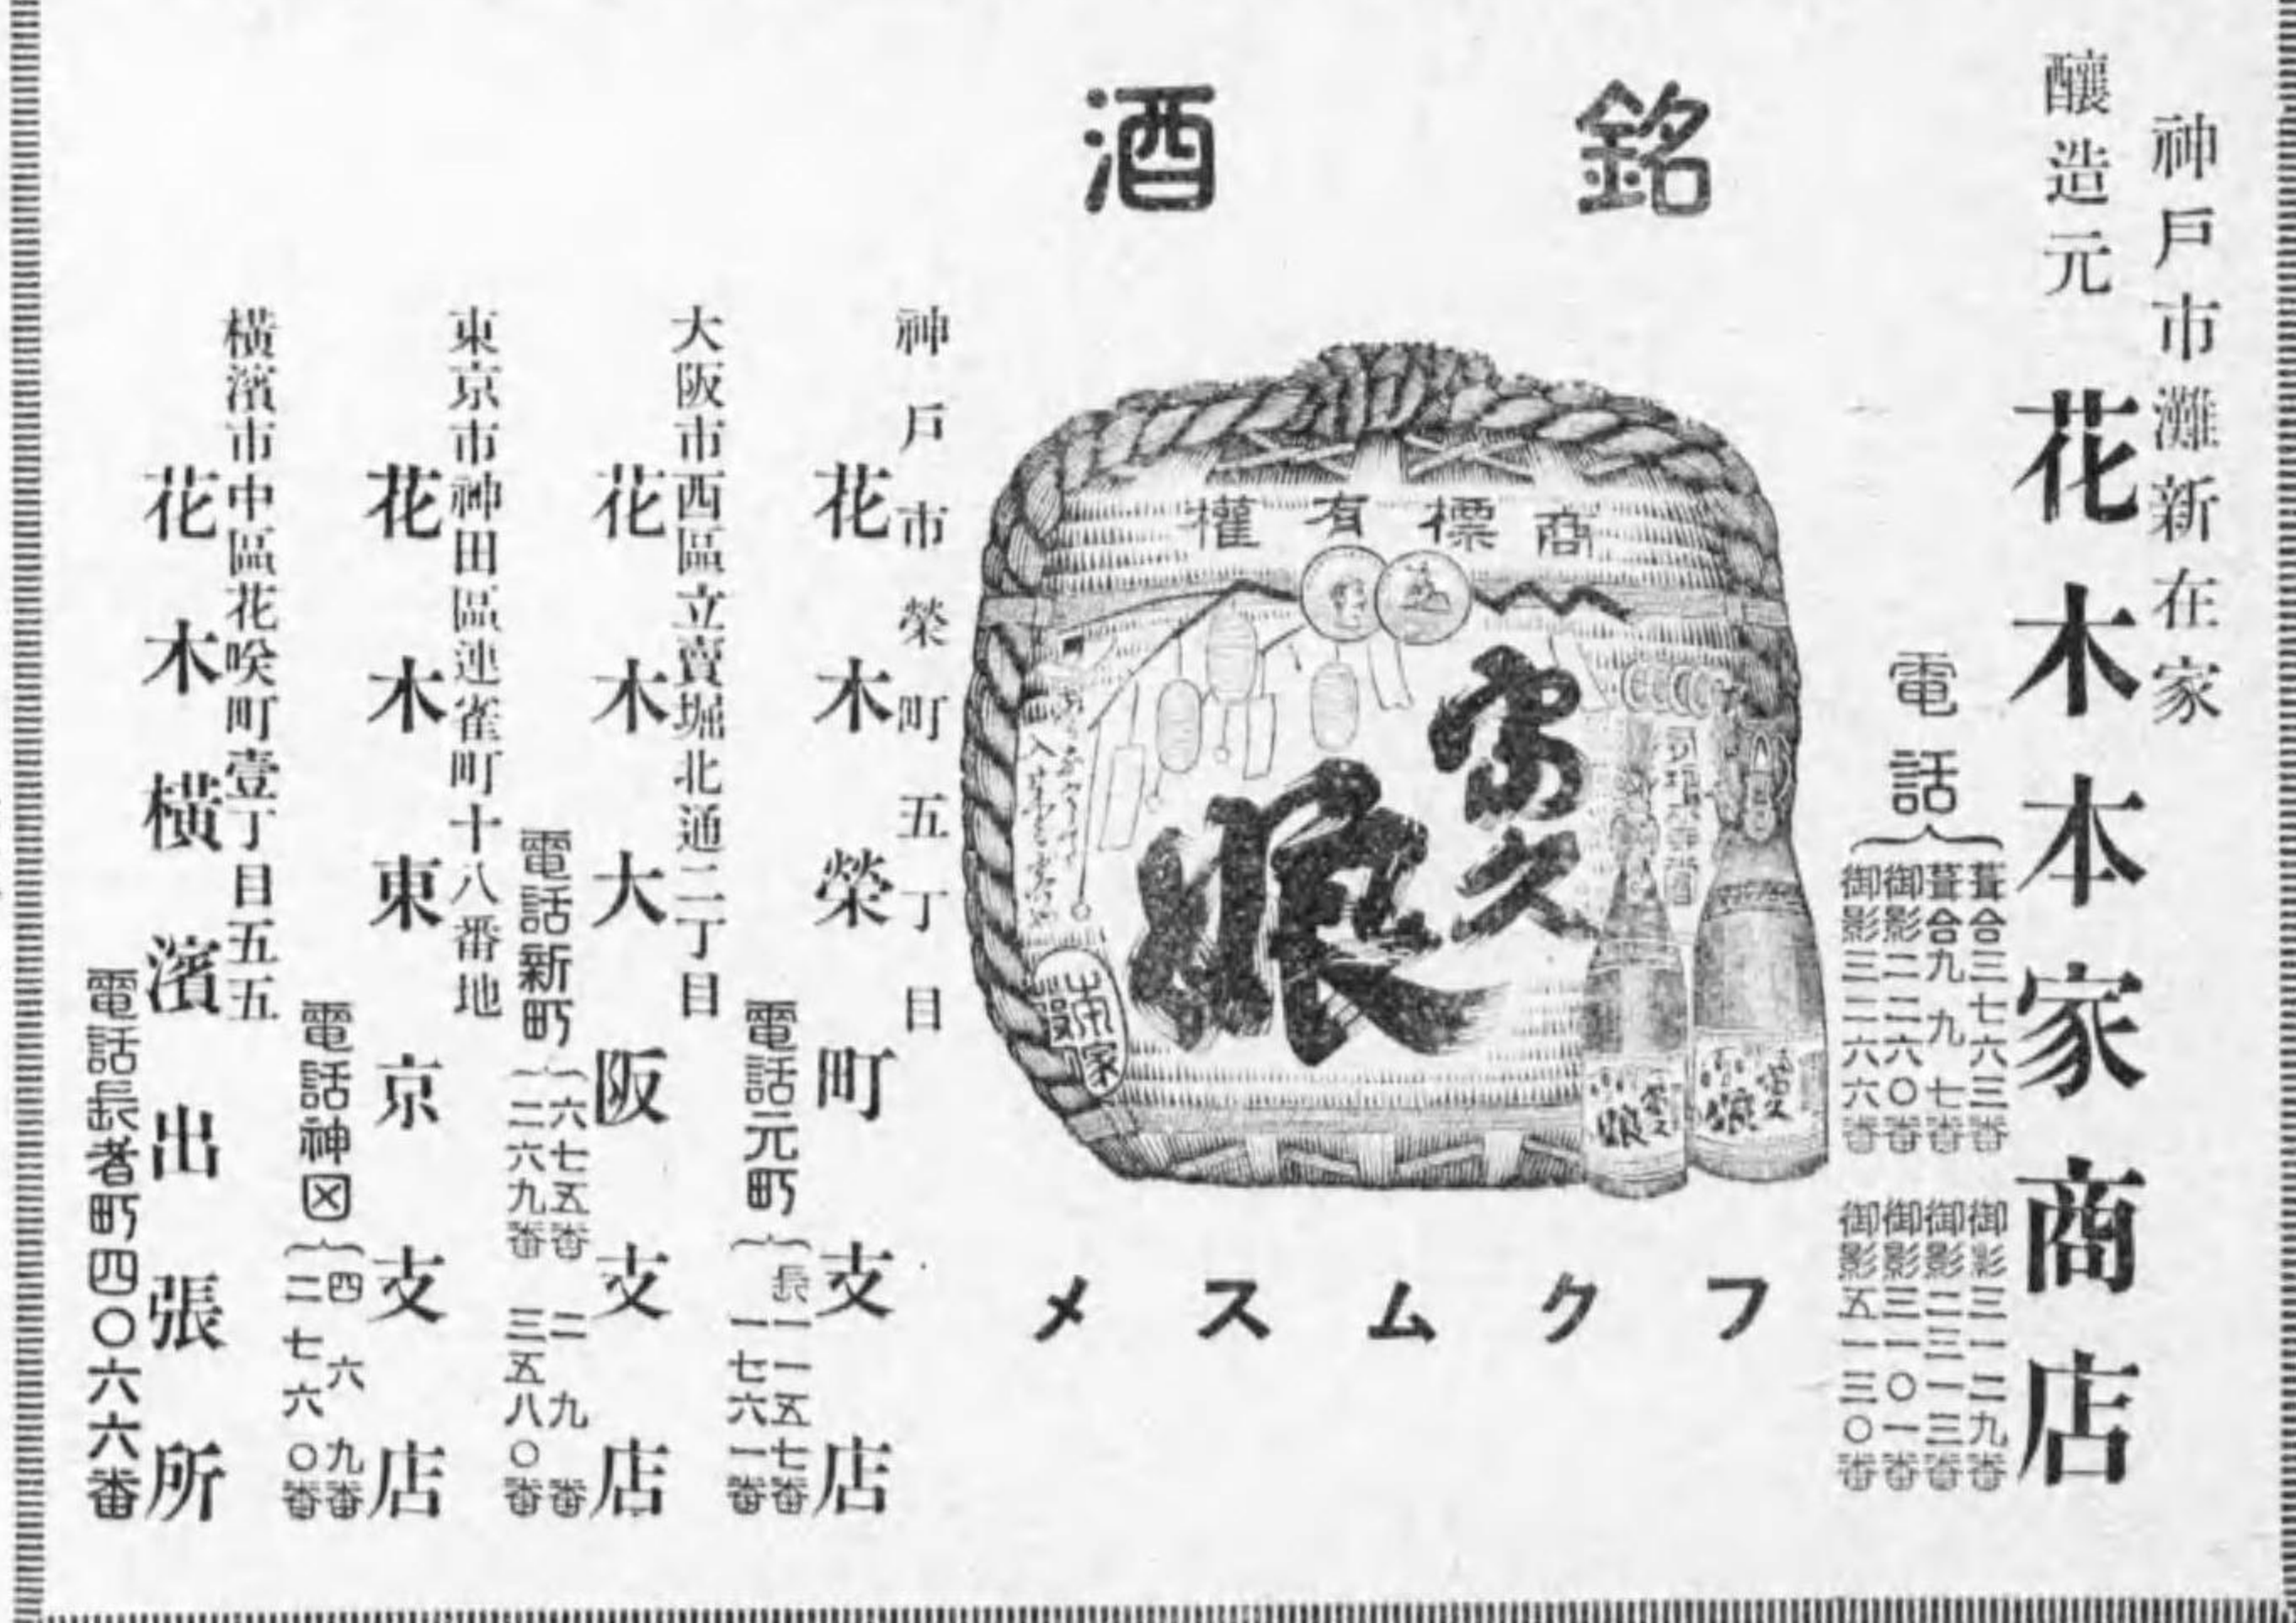 神戶市灘新在家
釀造元
花木本家商店
電話
葺合三七六三番
葺合九九七番
御影二二六〇番
御影三二六六番
御影三一二九番
御影二三一三番
御影三一〇一番
御影五一三〇番
銘酒
商標有權
富久
娘
フクムスメ
神戶市榮町五丁目
花木榮町支店
電話元町
長一一五七番
一七六一番
大阪市西區立賣堀北通二丁目
花木大阪支店
電話新町
六七五番
二六九番
二九番
三五八〇番
東京市神田區連雀町十八番地
花木東京支店
電話神田
四六九番
二七六〇番
橫濱市中區花咲町壹丁目五五
花木橫濱出張所
電話長者町四〇六六番